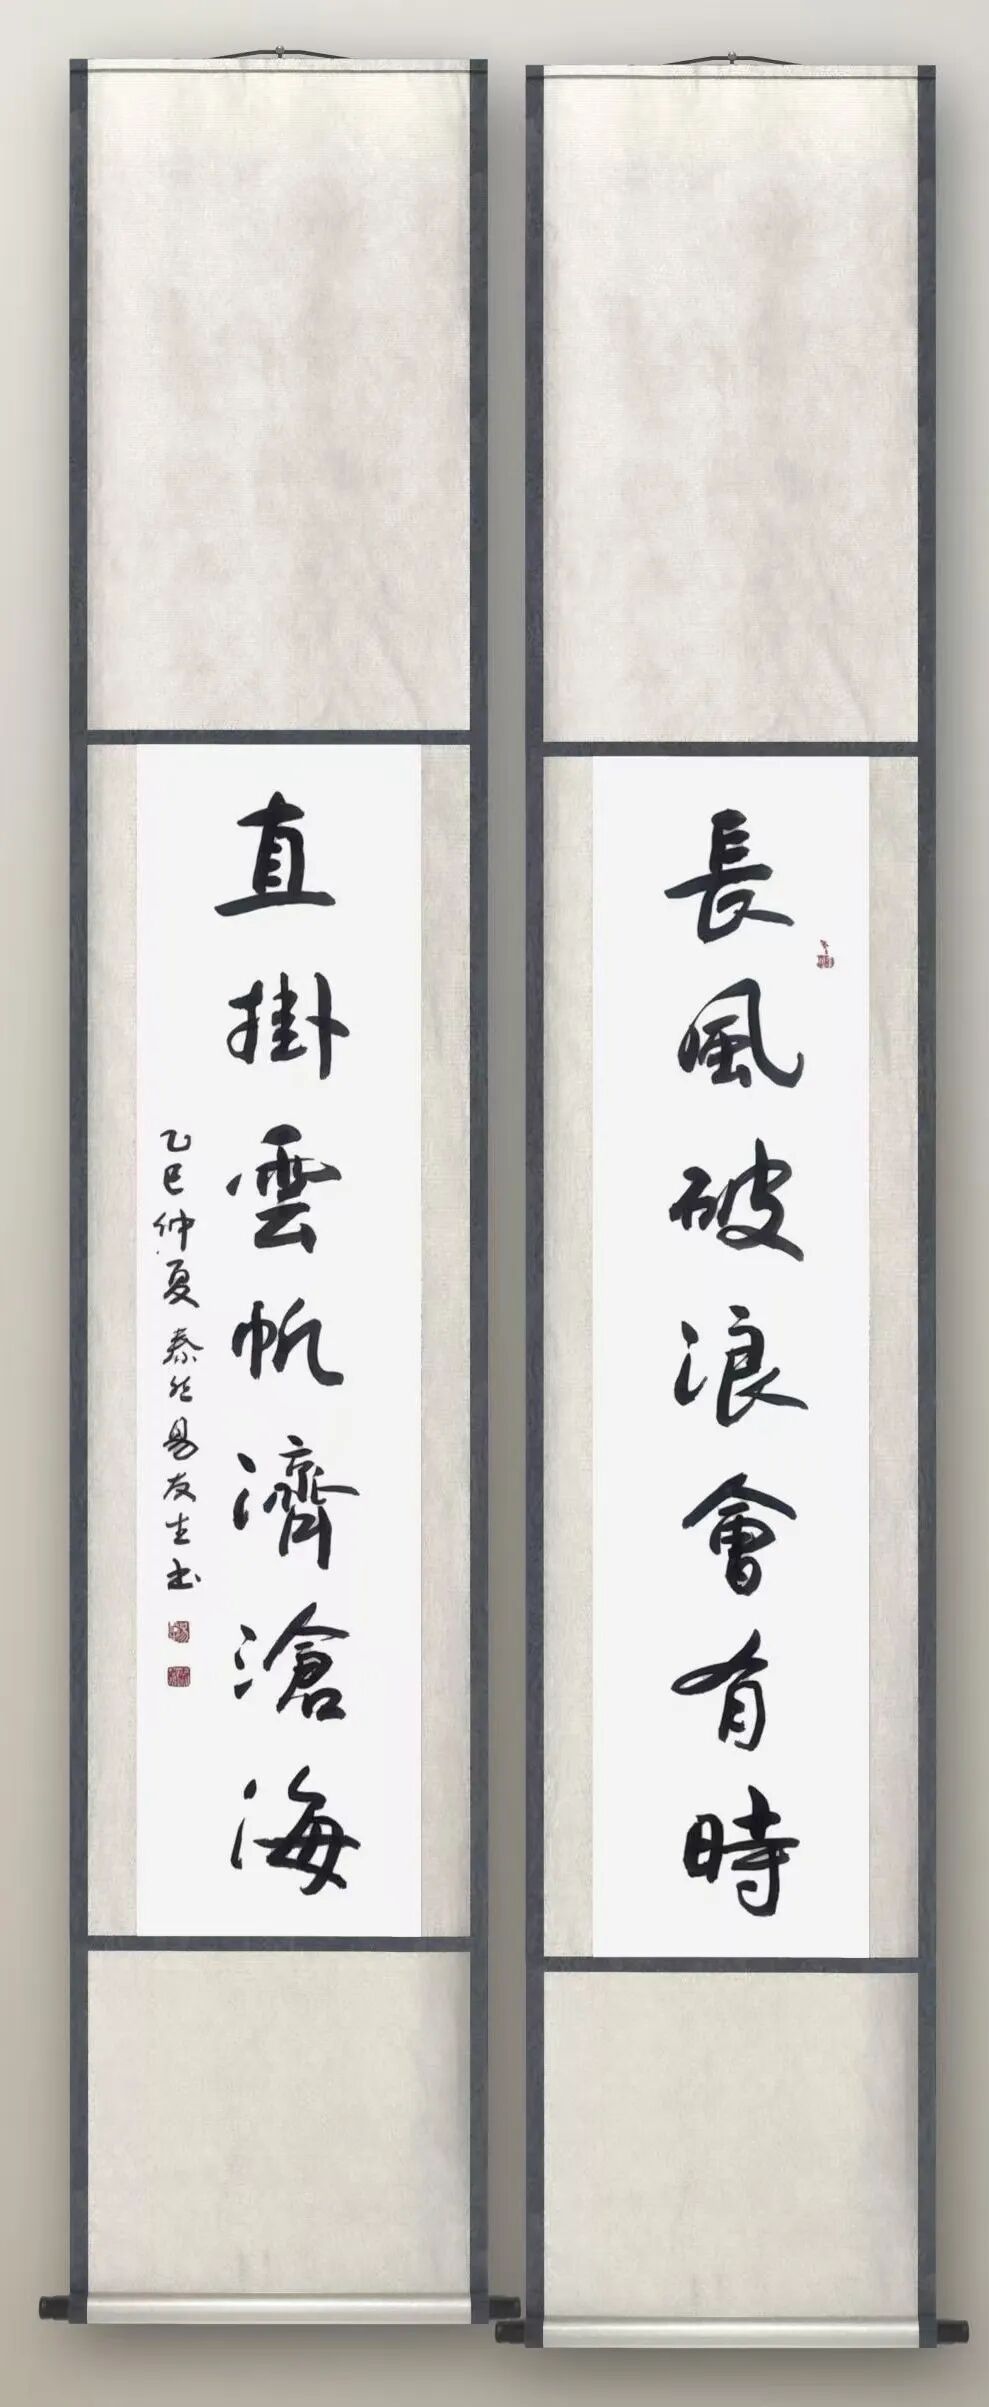 長風破浪會有時
直掛雲帆濟滄海
乙巳仲夏泰然易友生书